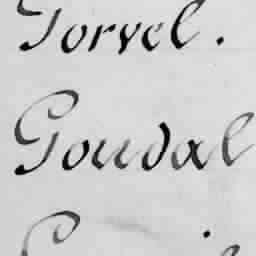 Torvel.
Goudal